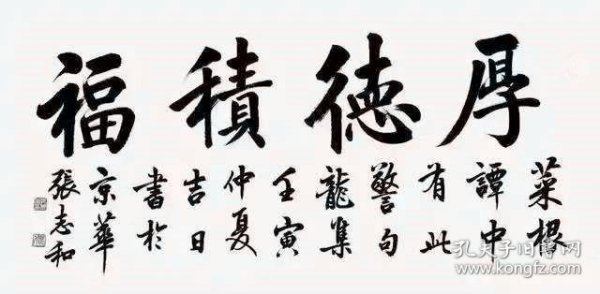 厚德積福
菜根
譚中
有此
警句
龍集
壬寅
仲夏
吉日
書於
京華
張志和
孔夫子旧书网
www.kongfz.com